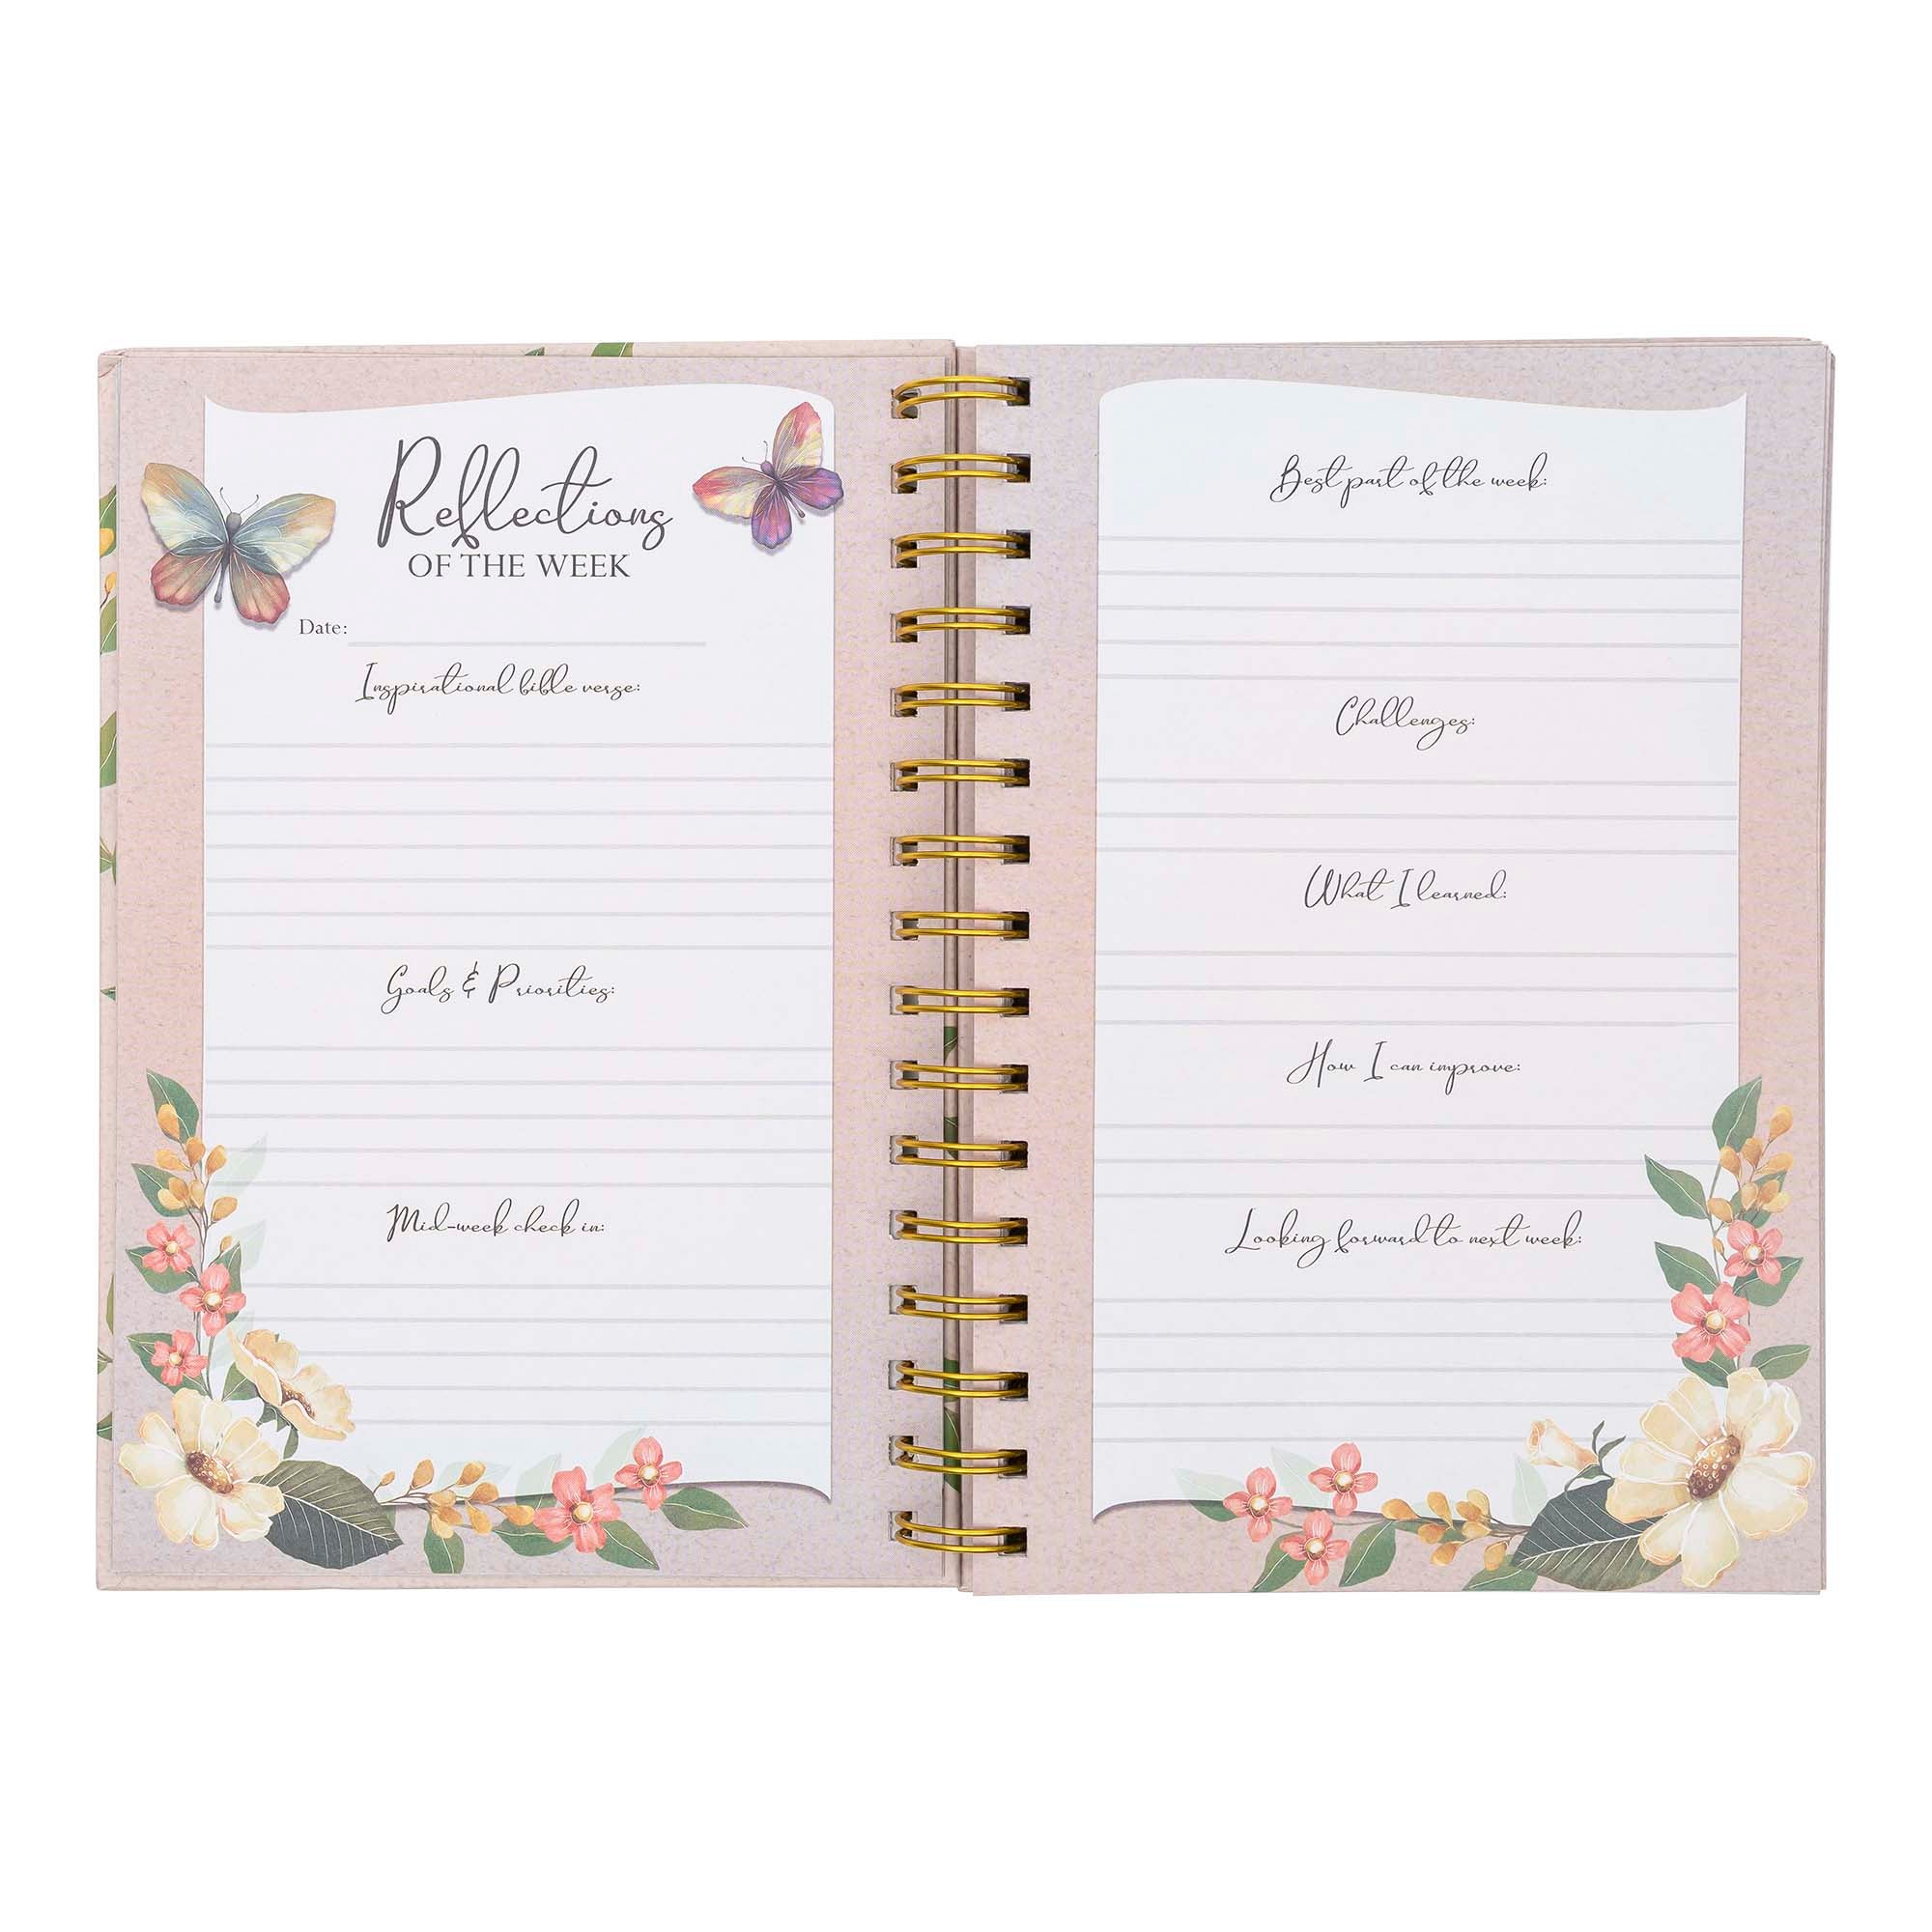 Reflections
OF THE WEEK
Date:
Inspirational bible verse:
Goals & Priorities:
Mid-week check in:
Best part of the week:
Challenges:
What I learned:
How I can improve:
Looking forward to next week: